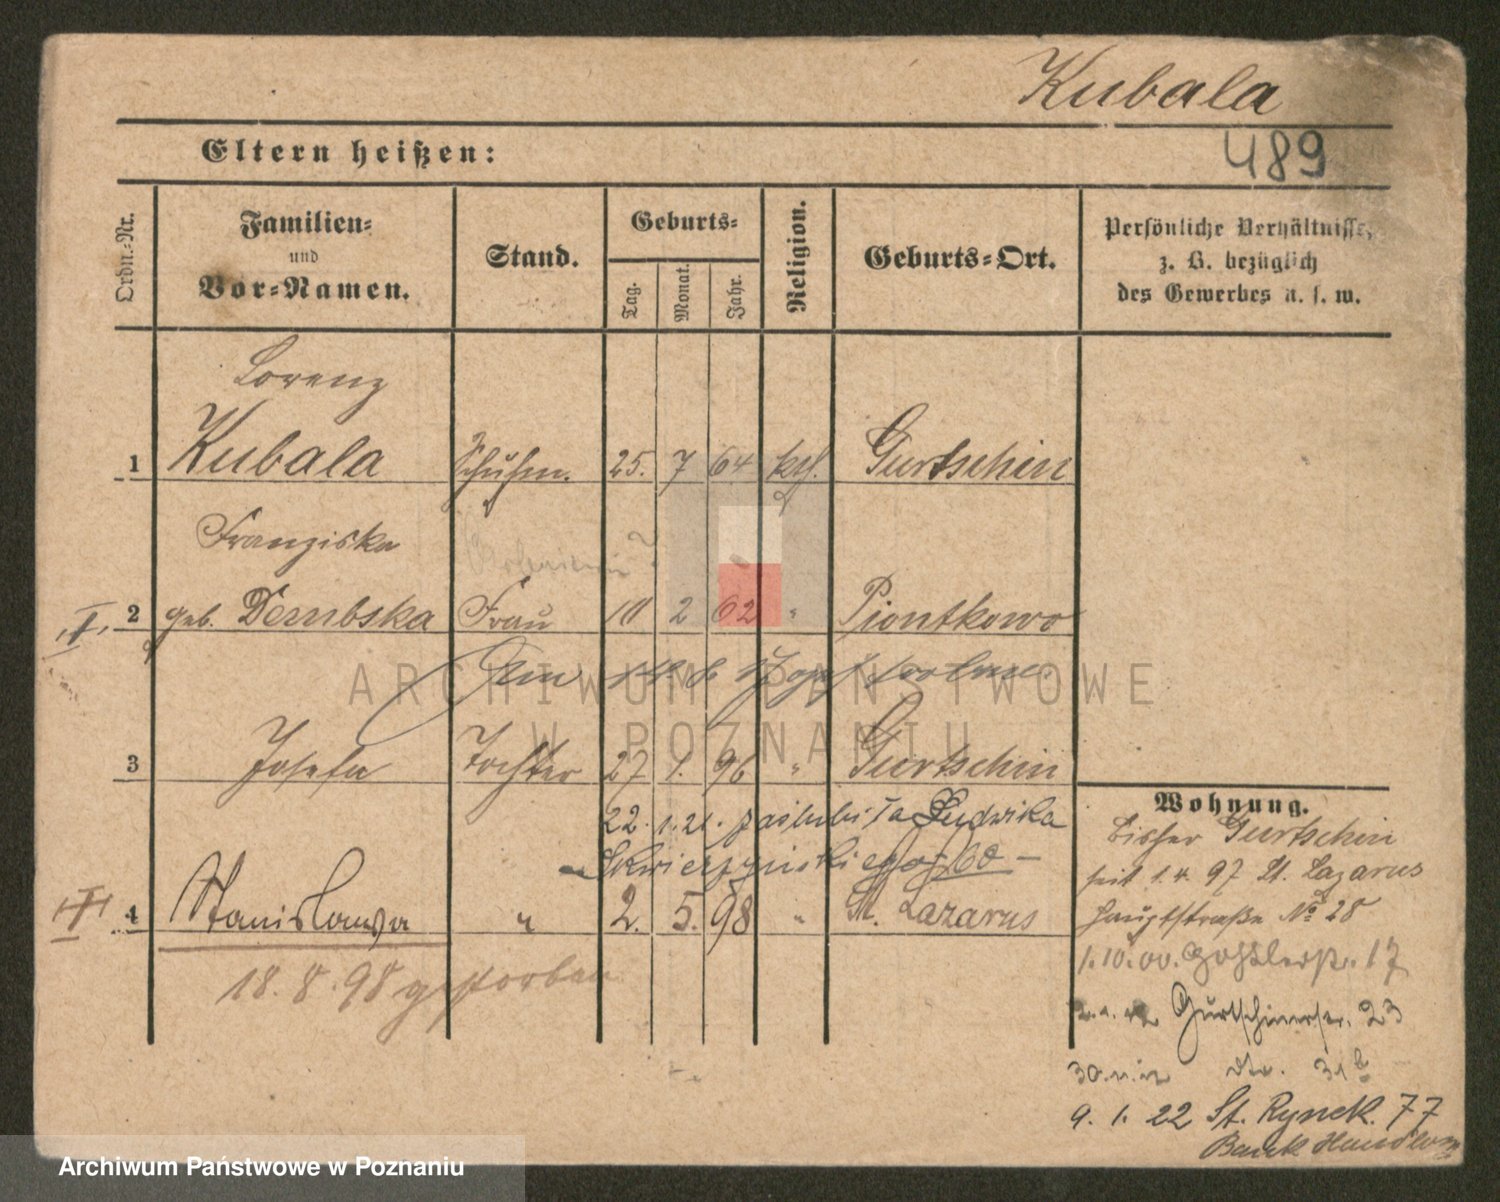 Kubala
Eltern heißen:
489
Ordn.-Nr.
Familien-
und
Vor-Namen.
Stand.
Geburts-
Tag.
Monat.
Jahr.
Religion.
Geburts-Ort.
Persönliche Verhältnisse,
z. B. bezüglich
des Gewerbes u. s. w.
Lorenz
1 Kubala Schuhm. 25. 7 64 kth. Gurtschin
Franziska
2 geb. Dembska Frau 10 2 62 " Piontkowo
3 Josefa Tochter 27 1. 96 " Gurtschin
22. 1. 21. zaślubiła Ludwika
Skwierzyńskiego
4 Stanislawa " 2. 5. 98 " St. Lazarus
18. 8. 98 gestorben
Wohnung.
bisher Gurtschin
seit 1. 4. 97 St. Lazarus
Hauptstraße No 28
1. 10. 00. Goßlerstr. 17
Gurtschinerstr. 23
dto. 31
9. 1. 22 St. Rynek. 77
Bank Handlowy
ARCHIWUM PAŃSTWOWE
W POZNANIU
Archiwum Państwowe w Poznaniu